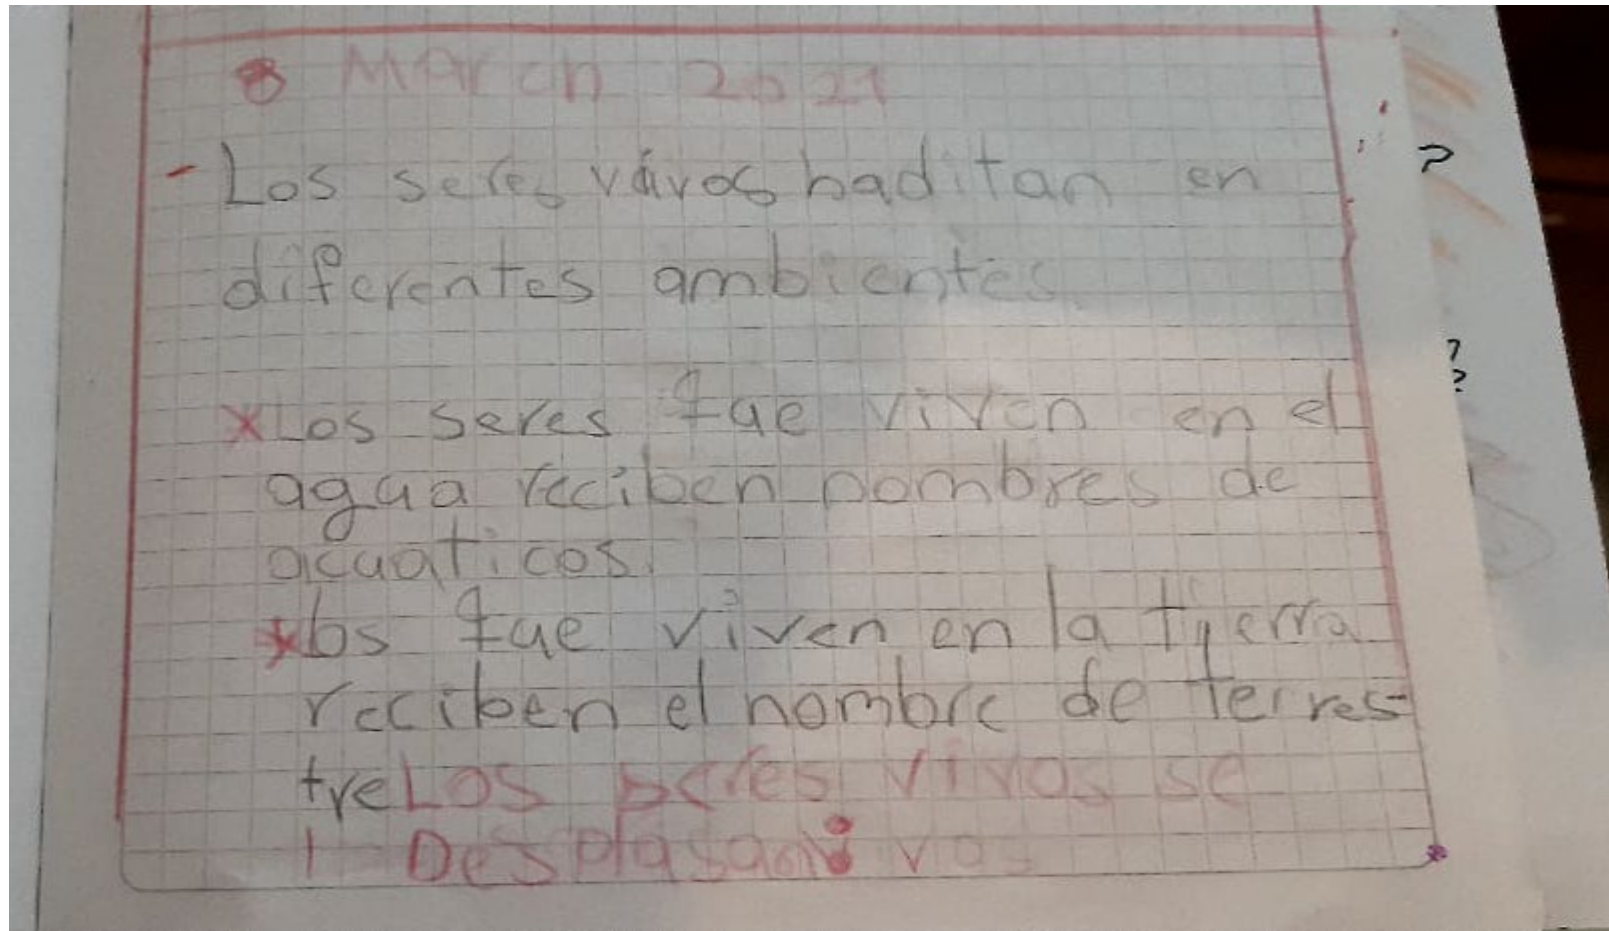 8 March 2021
- Los seres vivos haditan en
diferentes ambientes.
*Los seres que viven en el
agua reciben nombres de
acuaticos.
*los que viven en la tierra
reciben el nombre de terres-
tre Los seres vivos se
Desplasan
?
?
?